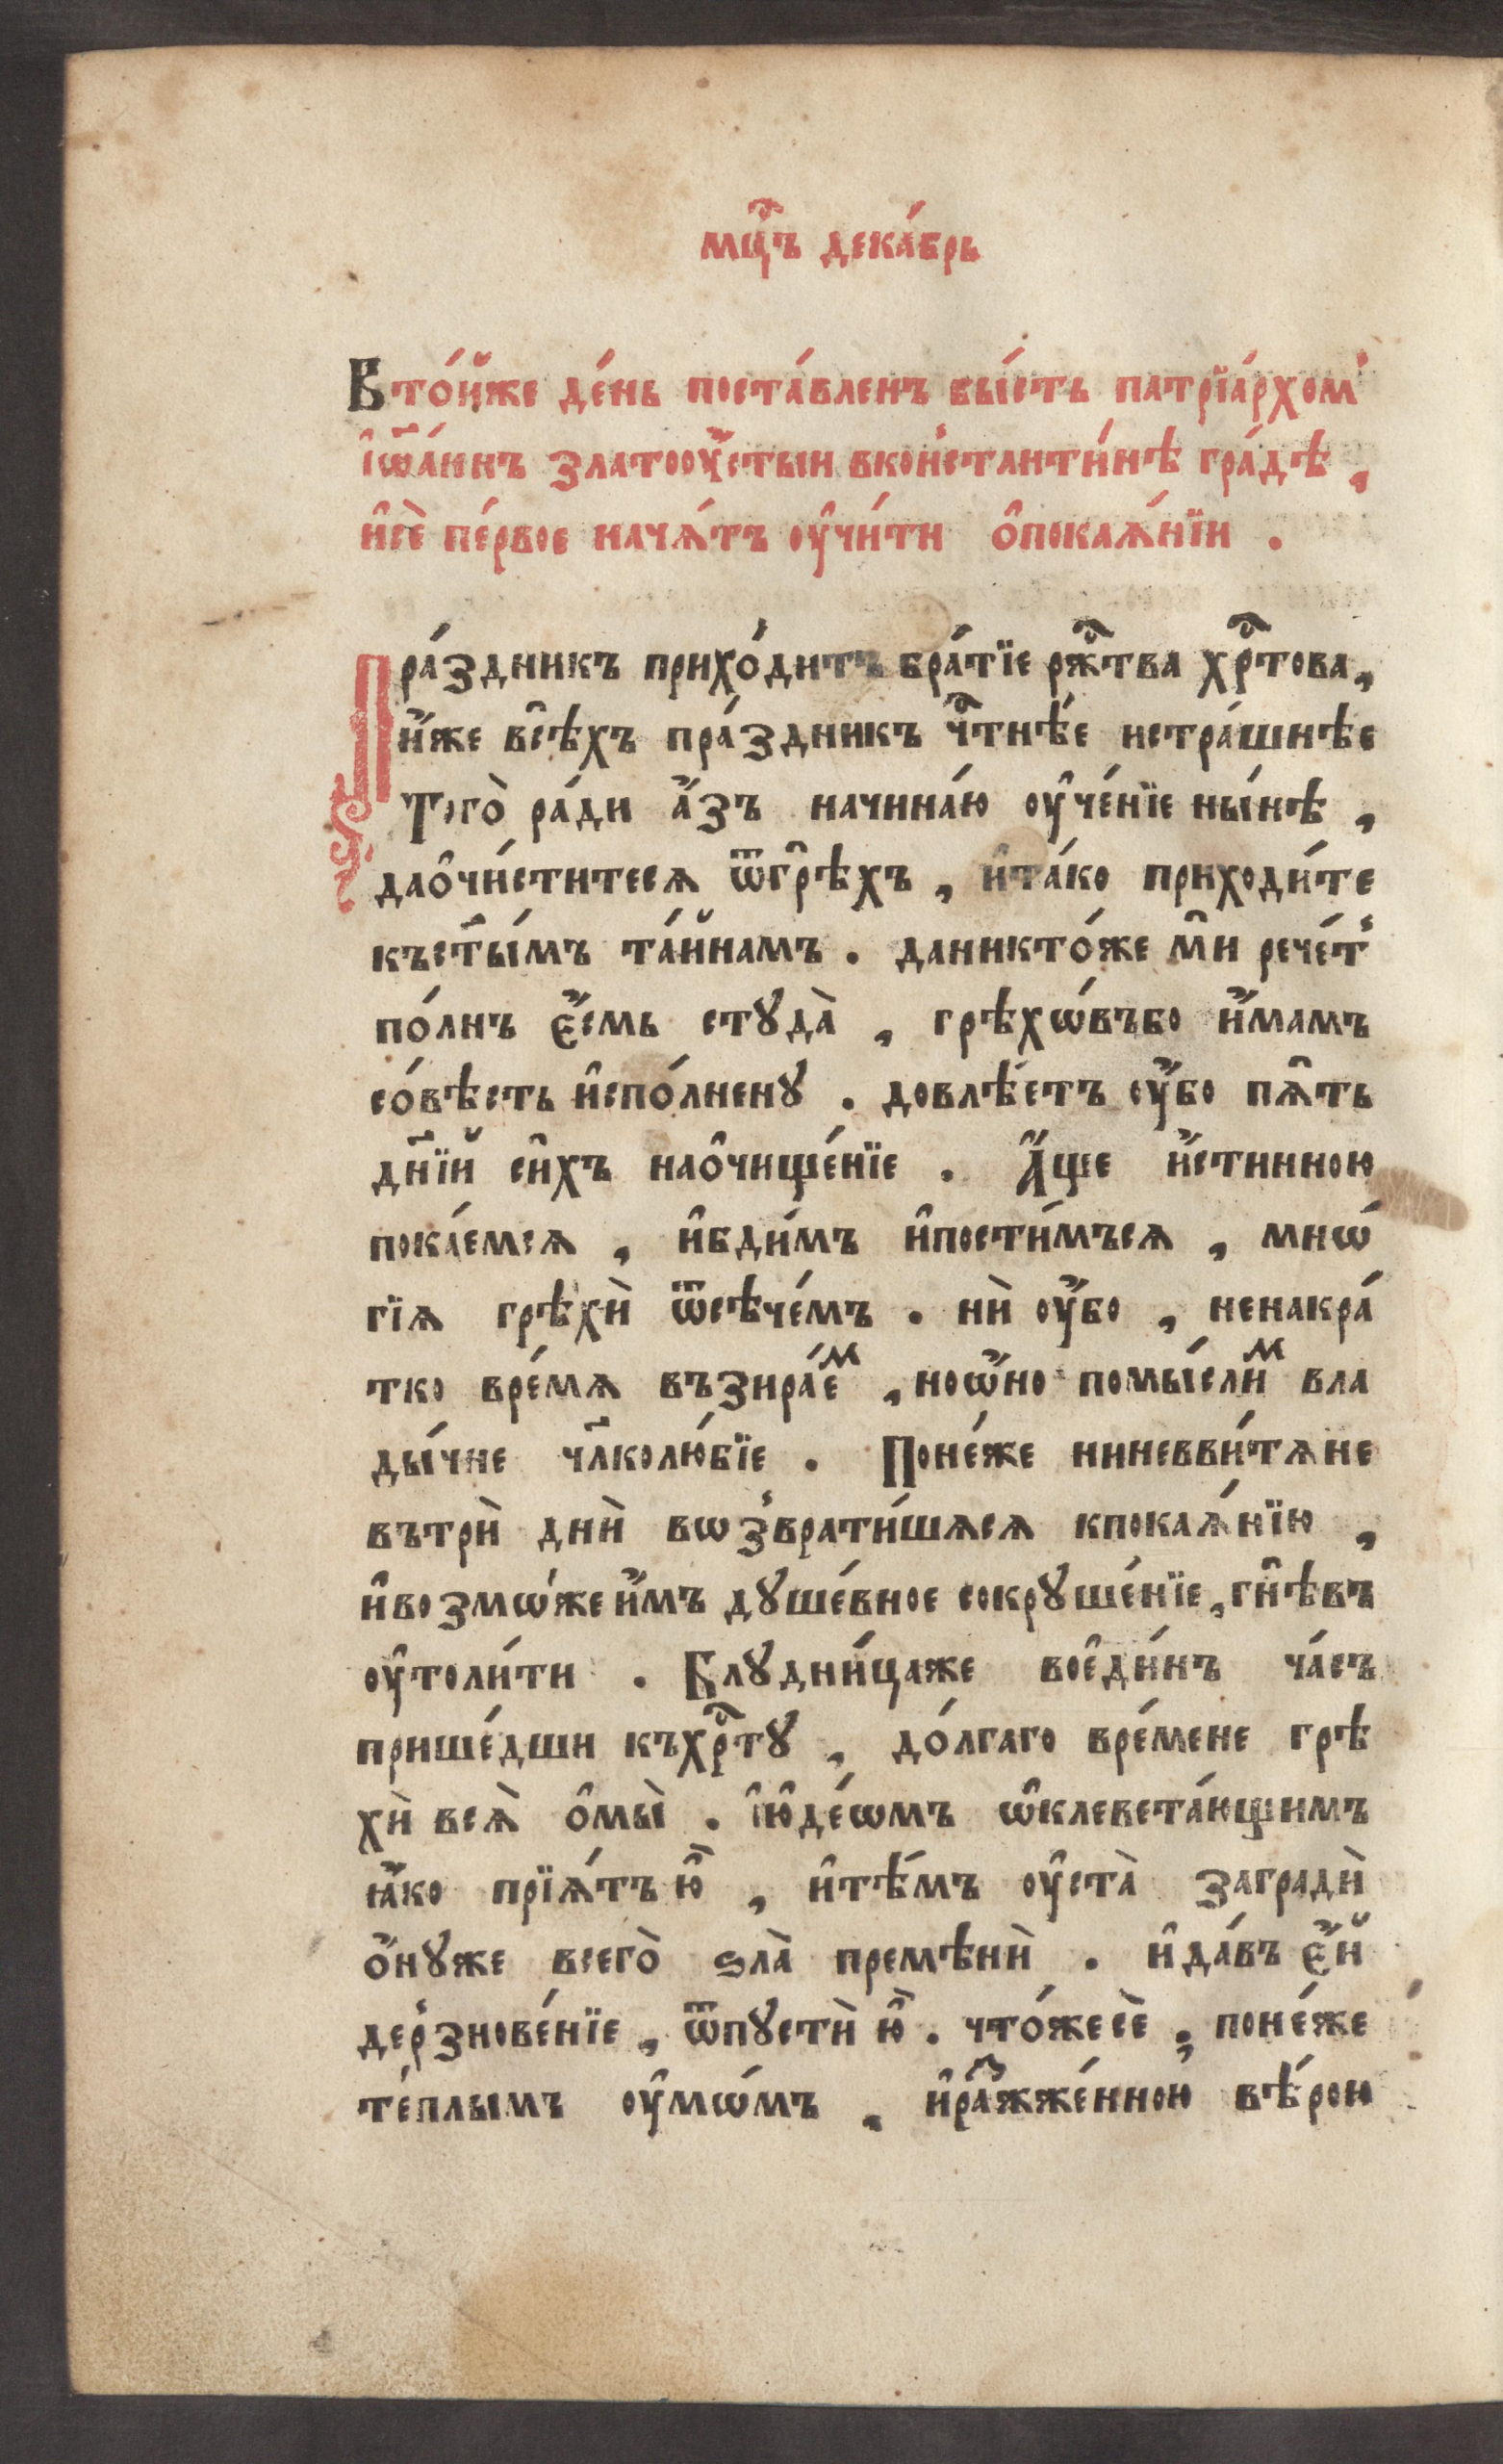 мц҇ъ дека́брь
Вто́йже де́нь поста́вленъ бы́сть патрїа́рхом̾
і҆ѡа́ннъ златооу҆́стыи вкон̾стянти́нѣ гра́дѣ,
и҆сѐ пе́рвое нача́тъ оу҆чи́ти о҆покая́нїи .
Пра́здникъ прихо́дитъ бра́тїе рж҇тва хр҇това,
и҆́же всѣ́хъ пра́здникъ ч҇тнѣ́е истра́шнѣе
Того̀ ра́ди а҆́зъ начина́ю оу҆че́нїе ны́нѣ ,
дао҆чи́ститеся ѿгрѣ̑хъ , и҆та́ко приходи́те
къст҃ы́мъ та́йнамъ . даникто́же ми̑ рече́т̾
по́лнъ є҆́смь стꙋда̀ , грѣхѡ́въбо и҆́мамъ
со́вѣсть и҆спо́лненꙋ . довлѣ́етъ оу҆́бо пя̑ть
дн҃їй си̑хъ нао҆чище́нїе . А҆́ще и҆́стинною
пока́емся , и҆бди́мъ и҆пости́мъся , мнѡ́
гїя грѣхѝ ѿсѣче́мъ . нѝ оу҆́бо , ненакра́
тко вре́мя възира́ем , ноѡ҆́но помы́слим вла
ды́чне чл҃колю́бїе . Поне́же ниневви́тяне
вътрѝ днѝ вѡз̾врати́шяся кпокая́нїю ,
и҆возмѡ́же и҆́мъ дꙋше́вное сокрꙋше́нїе, гнѣ̑въ
оу҆толи́ти . Блꙋдни́цаже вое҆ди́нъ ча́съ
прише́дши къхр҇тꙋ , до́лгаго вре́мене грѣ
хѝ вся̀ о҆мы̀ . і҆ю҆де́ѡмъ ѡ҆клевета́ющимъ
ꙗ҆́ко прїя́тъ ю҆̀ , и҆тѣ́мъ оу҆ста̀ заградѝ
о҆́нꙋже всего̀ ѕла̀ премѣнѝ . и҆да́въ є҆́й
дер̾знове́нїе , ѿпꙋстѝ ю҆̀ . что́жесѐ , поне́же
те́плымъ оу҆мѡ́мъ , и҆раж҇же́нною вѣ́рою